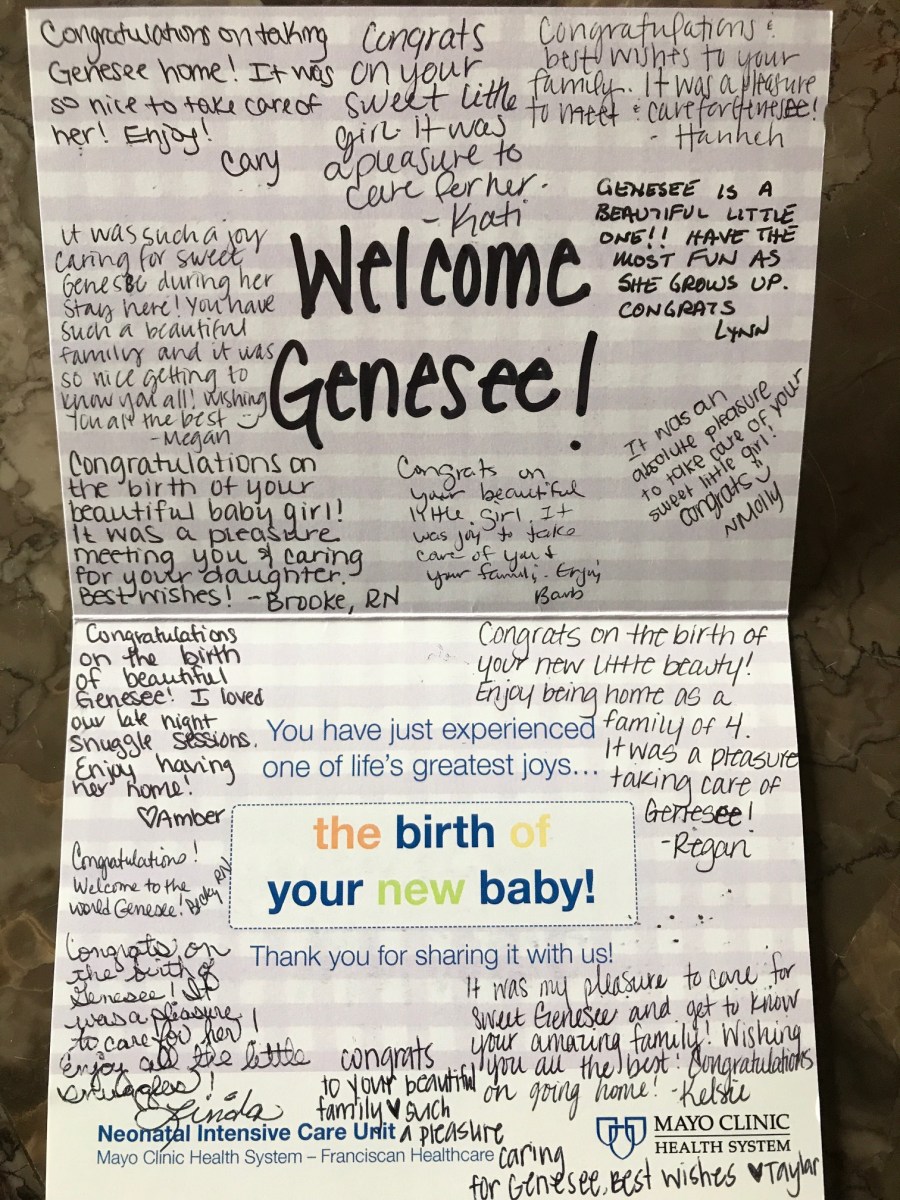 Congratulations on taking
Genesee home! It was
so nice to take care of
her! Enjoy!
Cary
Congrats
on your
sweet little
girl. It was
a pleasure to
care for her.
- Kati
Congratulations &
best wishes to your
family. It was a pleasure
to meet & care for Genesee!
- Hannah
GENESEE IS A
BEAUTIFUL LITTLE
ONE!! HAVE THE
MOST FUN AS
SHE GROWS UP.
CONGRATS
LYNN
It was such a joy
caring for sweet
Genesee during her
stay here! You have
such a beautiful
family and it was
so nice getting to
know you all! Wishing
you all the best
-Megan
Welcome
Genesee!
It was an
absolute pleasure
to take care of your
sweet little girl!
Congrats
~Molly
Congratulations on
the birth of your
beautiful baby girl!
It was a pleasure
meeting you & caring
for your daughter.
Best wishes! -Brooke, RN
Congrats on
your beautiful
little girl. It
was joy to take
care of you &
your family. Enjoy
Barb
Congratulations
on the birth
of beautiful
Genesee! I loved
our late night
snuggle sessions.
Enjoy having
her home!
♡Amber
Congrats on the birth of
your new little beauty!
Enjoy being home as a
family of 4.
It was a pleasure
taking care of
Genesee!
-Regan
You have just experienced
one of life's greatest joys...
the birth of
your new baby!
Thank you for sharing it with us!
Congratulations!
Welcome to the
world Genesee! Becky RN
Congrats on
the birth of
Genesee! It
was a pleasure
to care for her!
Enjoy all the little
snuggles!
Linda
It was my pleasure to care for
sweet Genesee and get to know
your amazing family! Wishing
you all the best! Congratulations
on going home! -Kelsie
congrats
to your beautiful
family ♥ such
a pleasure
caring
for Genesee, Best wishes ♥Taylar
Neonatal Intensive Care Unit
Mayo Clinic Health System – Franciscan Healthcare
MAYO CLINIC
HEALTH SYSTEM